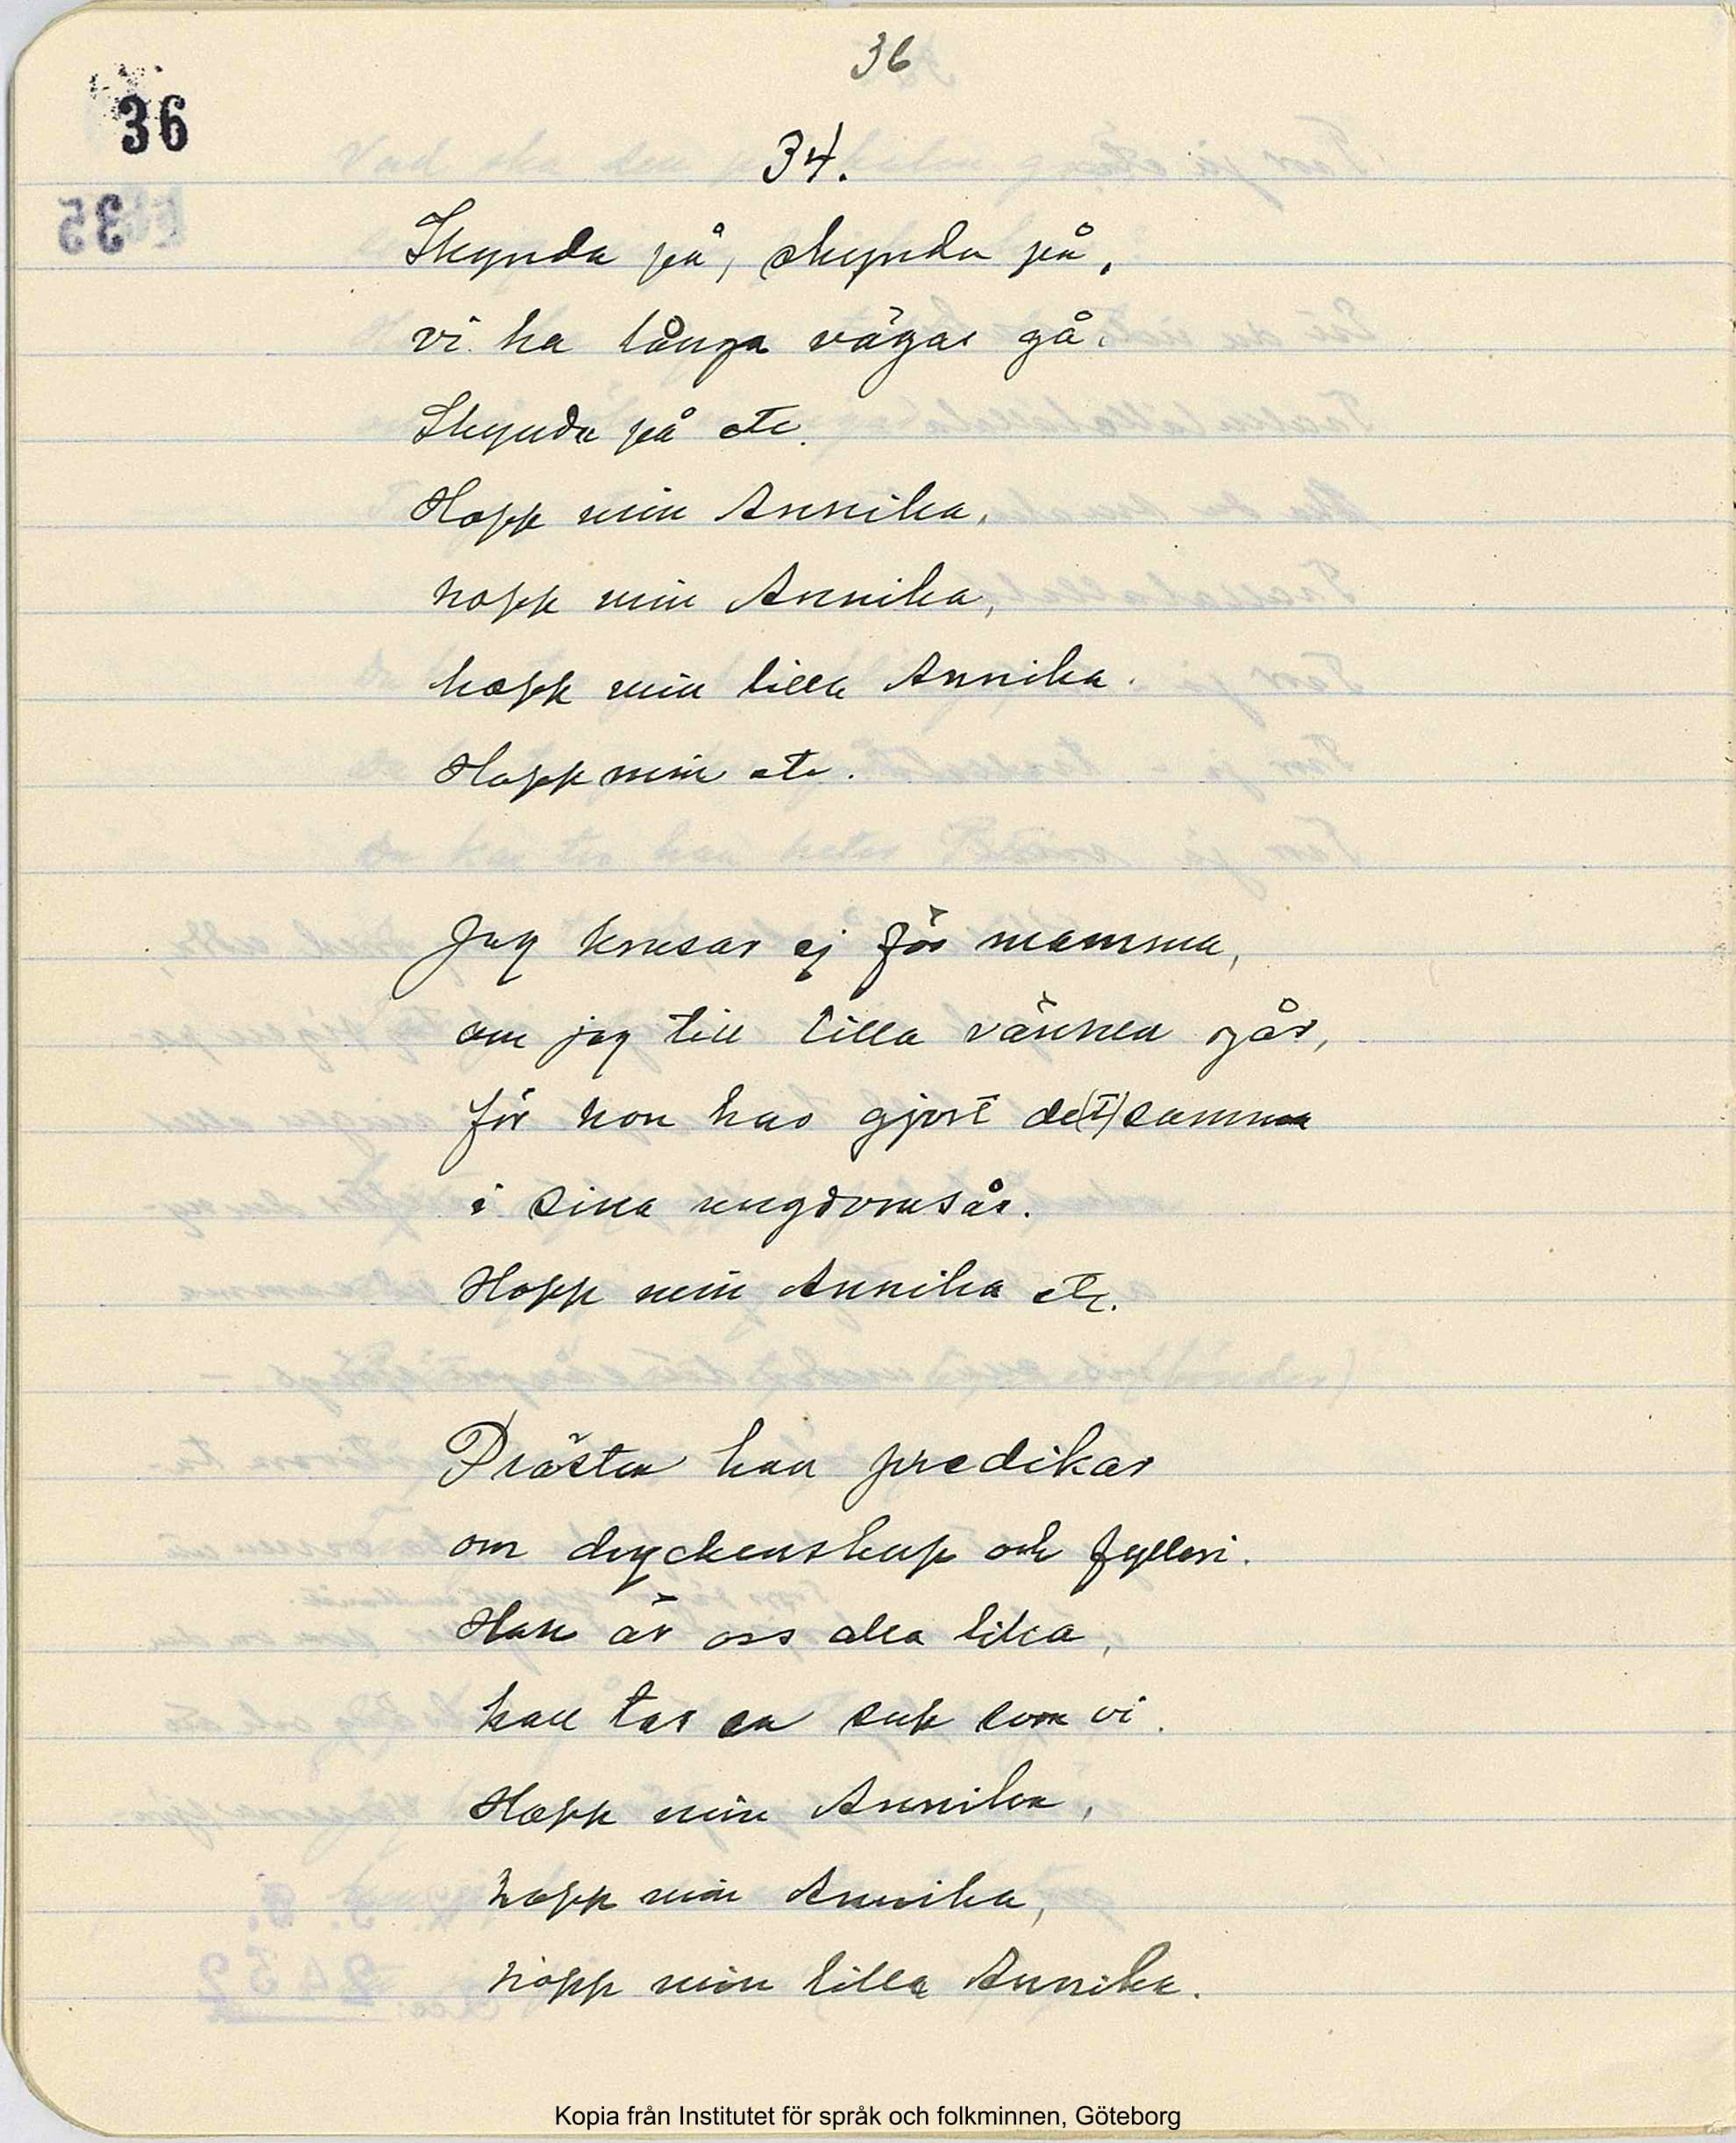 36
36
34.
Skynda på, skynda på,
vi ha långa vägar gå.
Skynda på etc.
Hopp min Annika,
hopp min Annika,
hopp min lilla Annika.
Hopp min etc.
Jag krusar ej för mamma,
om jag till lilla vännen går,
för hon har gjort de(t) samma
i sina ungdomsår.
Hopp min Annika etc.
Prästen han predikar
om dryckenskap och fylleri.
Han är oss alla lika,
han tar en sup som vi.
Hopp min Annika,
hopp min Annika,
hopp min lilla Annika.
Kopia från Institutet för språk och folkminnen, Göteborg